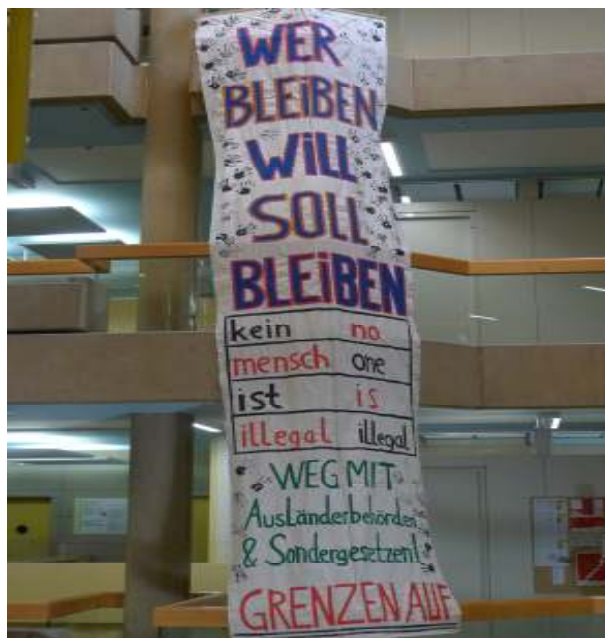 WER
BLEiBEN
WiLL
SOLL
BLEiBEN
kein no
mensch one
ist is
illegal illegal
WEG MIT
Ausländerbehörden
& Sondergesetzen!
GRENZEN AUF